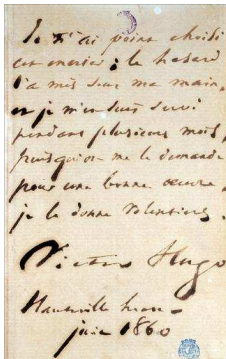 Je n'ai point choisi
cet encrier ; le hasard
l'a mis sous ma main,
et je m'en suis servi
pendant plusieurs mois,
puisqu'on me le demande
pour une bonne œuvre,
je le donne volontiers.
Victor Hugo
Hauteville house –
juin 1860